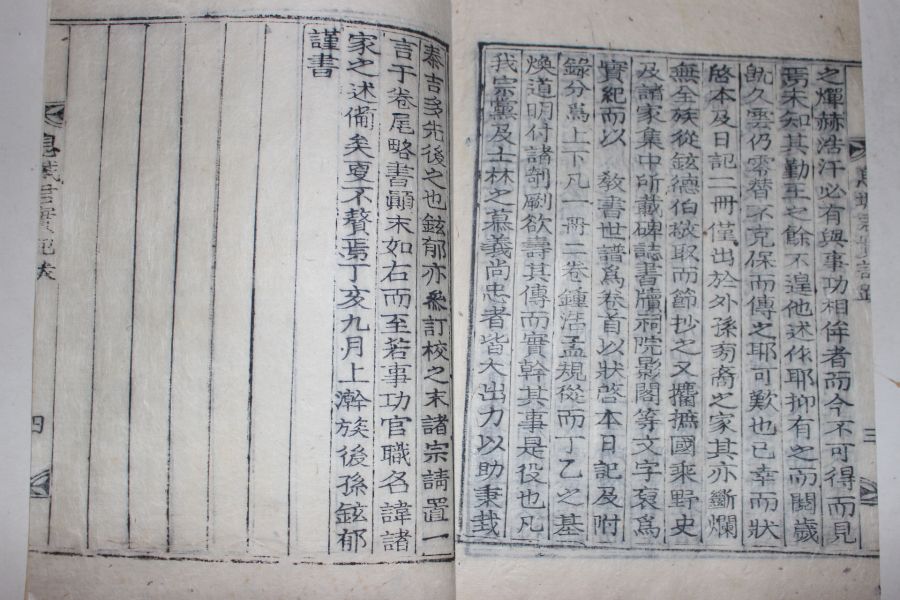 之燀赫浩汗必有與事功相侔者而今不可得而見
焉未知其勤王之餘不遑他述作耶抑有之而閱歲
飢久雲仍零替不克保而傳之耶可歎也已幸而狀
啓本及日記二冊僅出於外孫裔之家其亦斷爛
無全族從鉉德伯故取而節抄之又攟摭國乘野史
及諸家集中所載碑誌書牘祠院影閣等文字裒爲
實紀而以 敎書世譜爲卷首以狀啓本日記及附
錄分爲上下凡一冊二卷鍾浩孟規從而丁乙之基
煥道明付諸剞劂欲壽其傳而實幹其事是役也凡
我宗黨及士林之慕義尙忠者皆大出力以助秉
泰吉多先後之也鉉郁亦參訂校之末諸宗請置一
言于卷尾略書顚末如右而至若事功官職名諱諸
家之述備矣更不贅焉丁亥九月上澣族後孫鉉郁
謹書
四